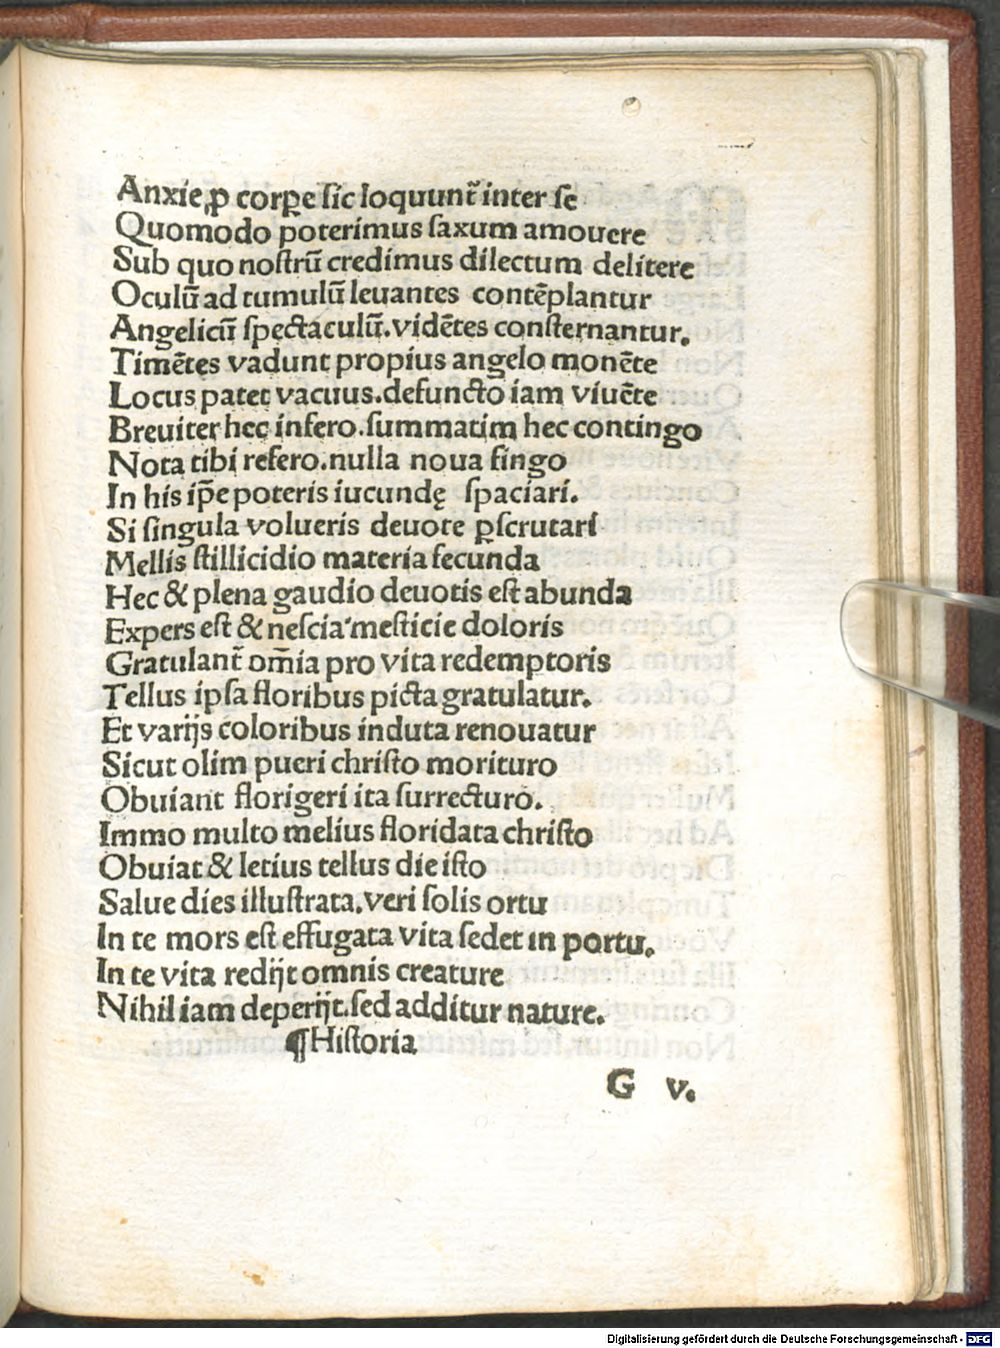 Anxie ꝓ corꝑe ſic loquunt̃ inter ſe
Quomodo poterimus ſaxum amouere
Sub quo noſtrũ credimus dilectum delitere
Oculũ ad tumulũ leuantes contẽplantur
Angelicũ ſpectaculũ. vidẽtes conſternantur.
Timẽtes vadunt propius angelo monẽte
Locus patet vacuus. defuncto iam viuẽte
Breuiter hec infero. ſummatim hec contingo
Nota tibi refero. nulla noua fingo
In his ip̃e poteris iucundę ſpaciari.
Si ſingula volueris deuote ꝑſcrutari
Mellis ſtillicidio materia fecunda
Hec & plena gaudio deuotis eſt abunda
Expers eſt & neſcia meſticie doloris
Gratulant̃ om̃ia pro vita redemptoris
Tellus ipſa floribus picta gratulatur.
Et varijs coloribus induta renouatur
Sicut olim pueri chriſto morituro
Obuiant florigeri ita ſurrecturo.
Immo multo melius floridata chriſto
Obuiat & letius tellus die iſto
Salue dies illuſtrata. veri ſolis ortu
In te mors eſt effugata vita ſedet in portu.
In te vita redijt omnis creature
Nihil iam deperijt. ſed additur nature.
¶Hiſtoria
G v.
Digitalisierung gefördert durch die Deutsche Forschungsgemeinschaft - DFG